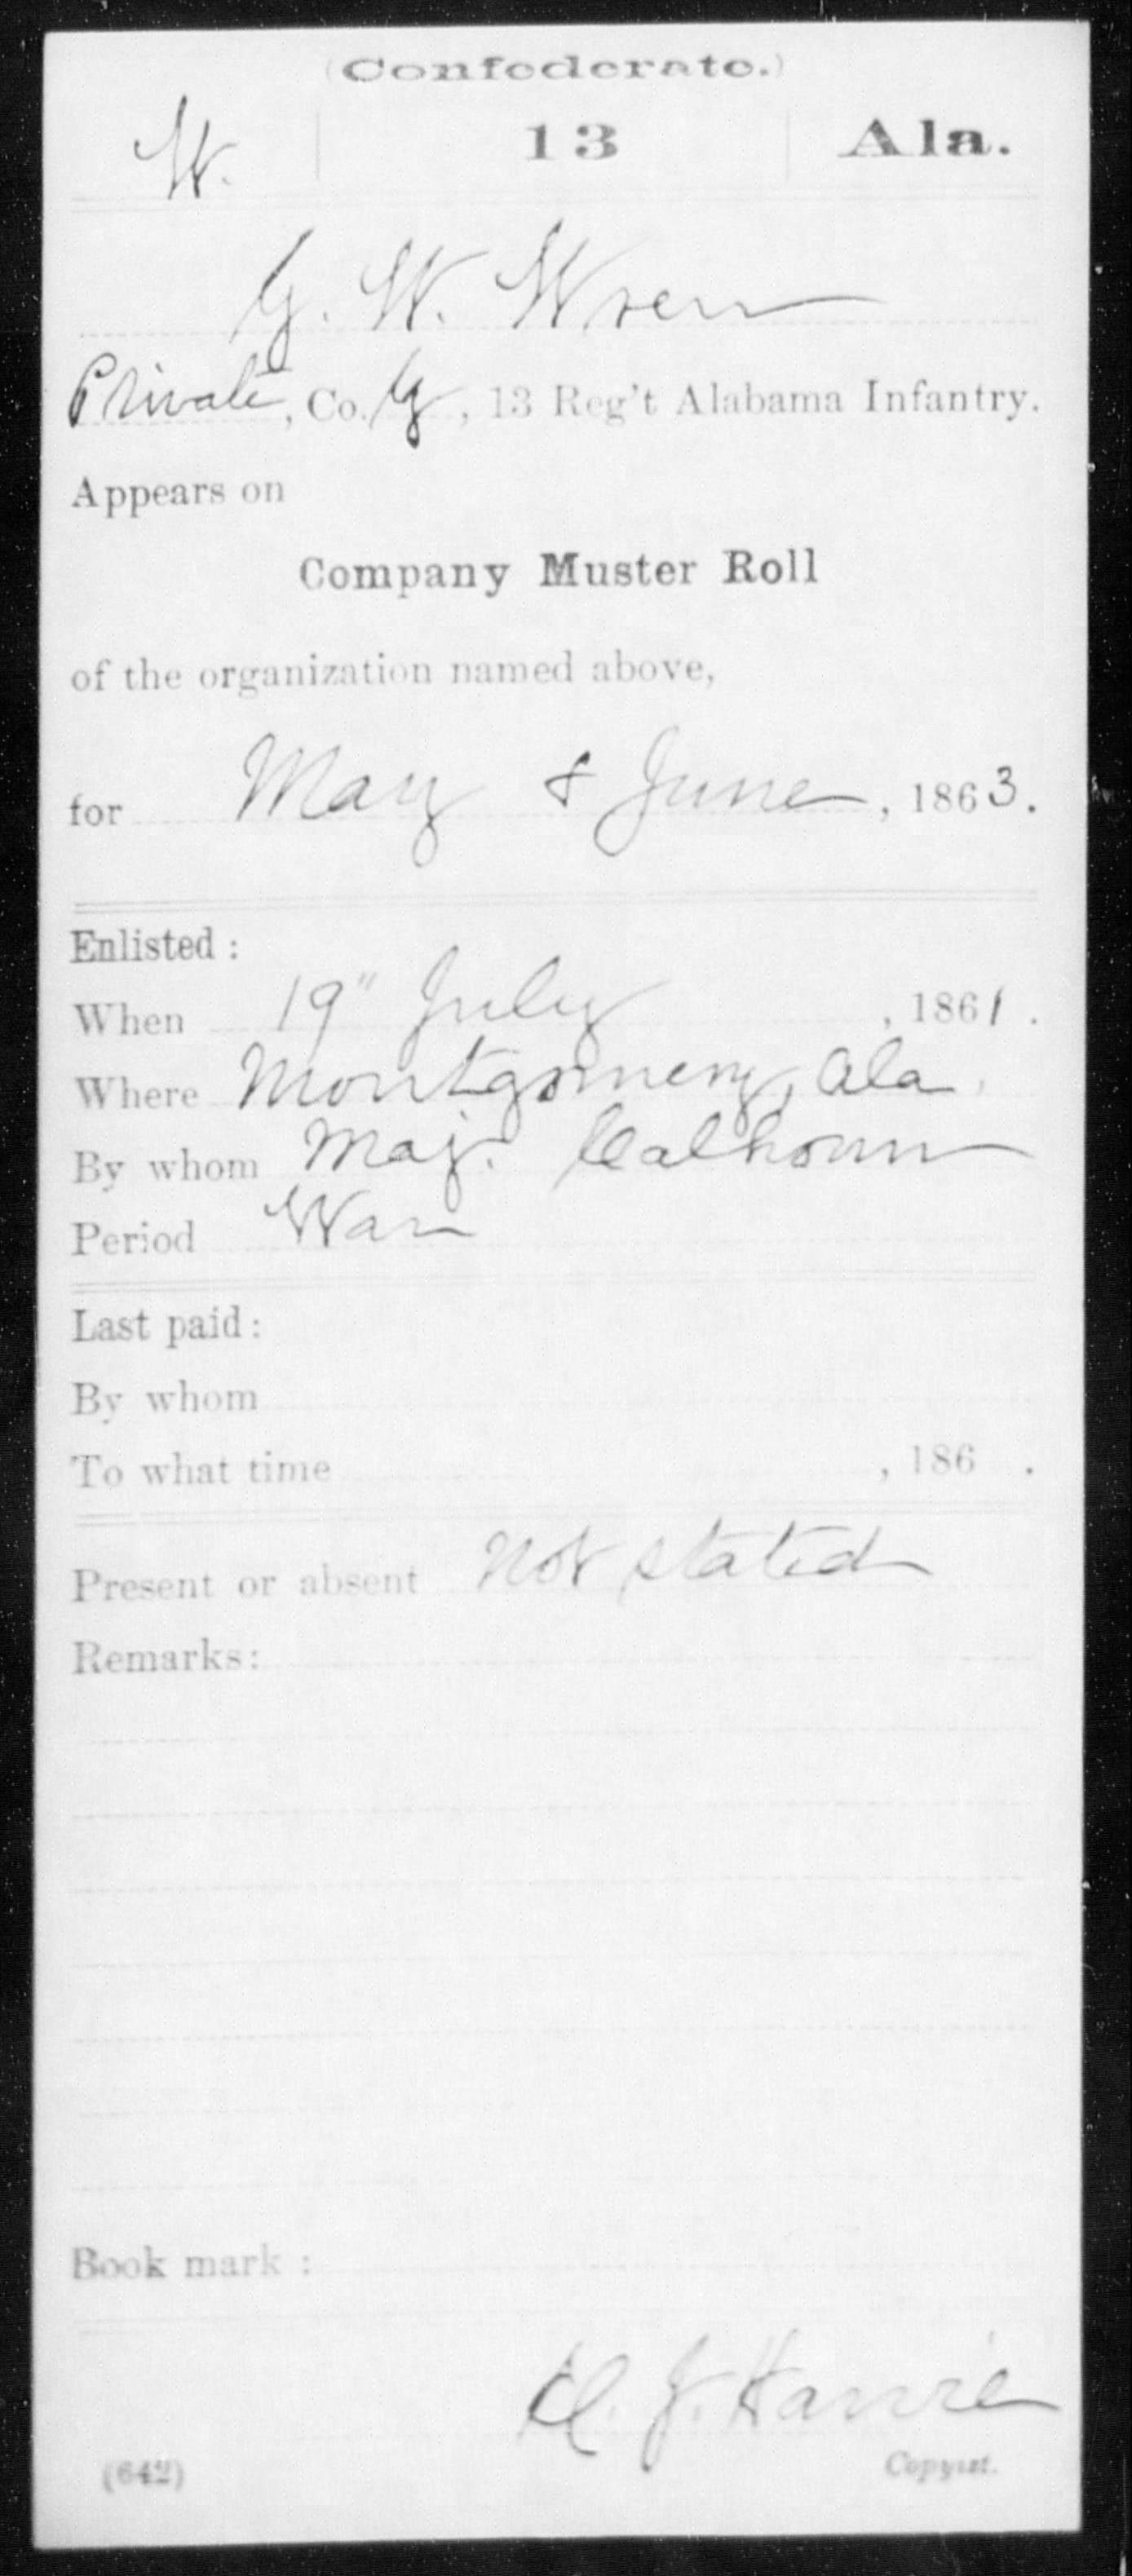 (Confederate.)
W. 13 Ala.
G. W. Wren
Private, Co. G, 13 Reg't Alabama Infantry.
Appears on
Company Muster Roll
of the organization named above,
for May & June, 1863.
Enlisted:
When 19" July, 1861.
Where Montgomery, Ala.
By whom Maj. Calhoun
Period War
Last paid:
By whom
To what time , 186 .
Present or absent Not stated
Remarks:
Book mark:
J.
(642) Copyist.